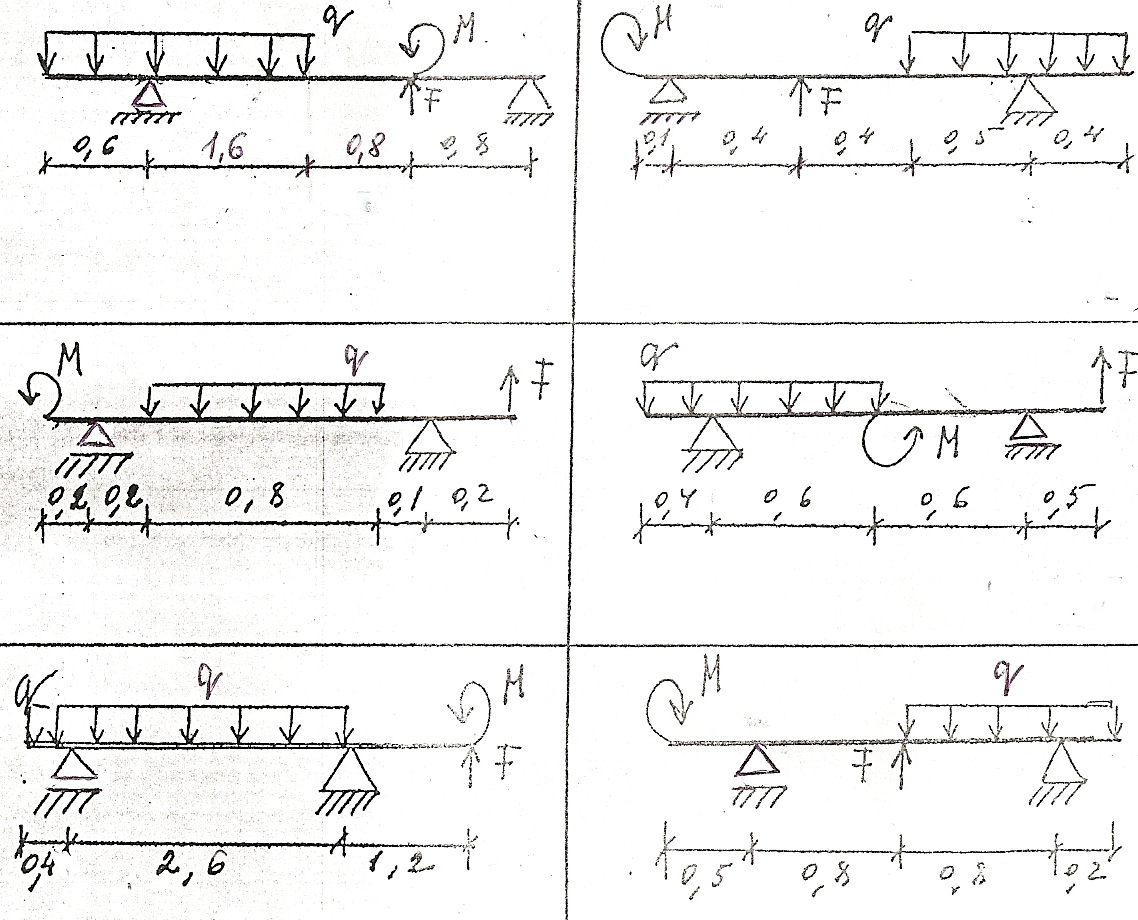 q M
F
0,6 1,6 0,8 0,8
M q
F
0,1 0,4 0,4 0,5 0,4
M q F
0,2 0,2 0,8 0,1 0,2
q F
M
0,4 0,6 0,6 0,5
q q M
F
0,4 2,6 1,2
M q
F
0,5 0,8 0,8 0,2